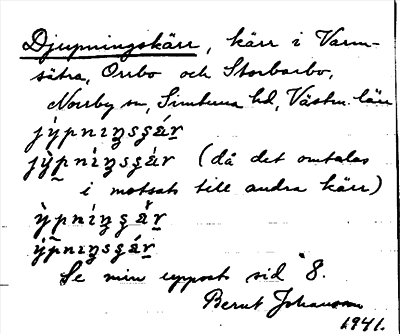 Djupningskärr, kärr i Varm-
sätra, Orrbo och Storbarbo,
Norrby sn, Simtuna hd, Västm. län
jỳpnìŋsɕáṛ
jỳpnìŋsɕár (då det omtalas
i motsats till andra kärr)
ỳpníŋsɕáṛ
ỳpnìŋsɕáṛ
Se min uppsats sid 8.
Bernt Johansson
1941.